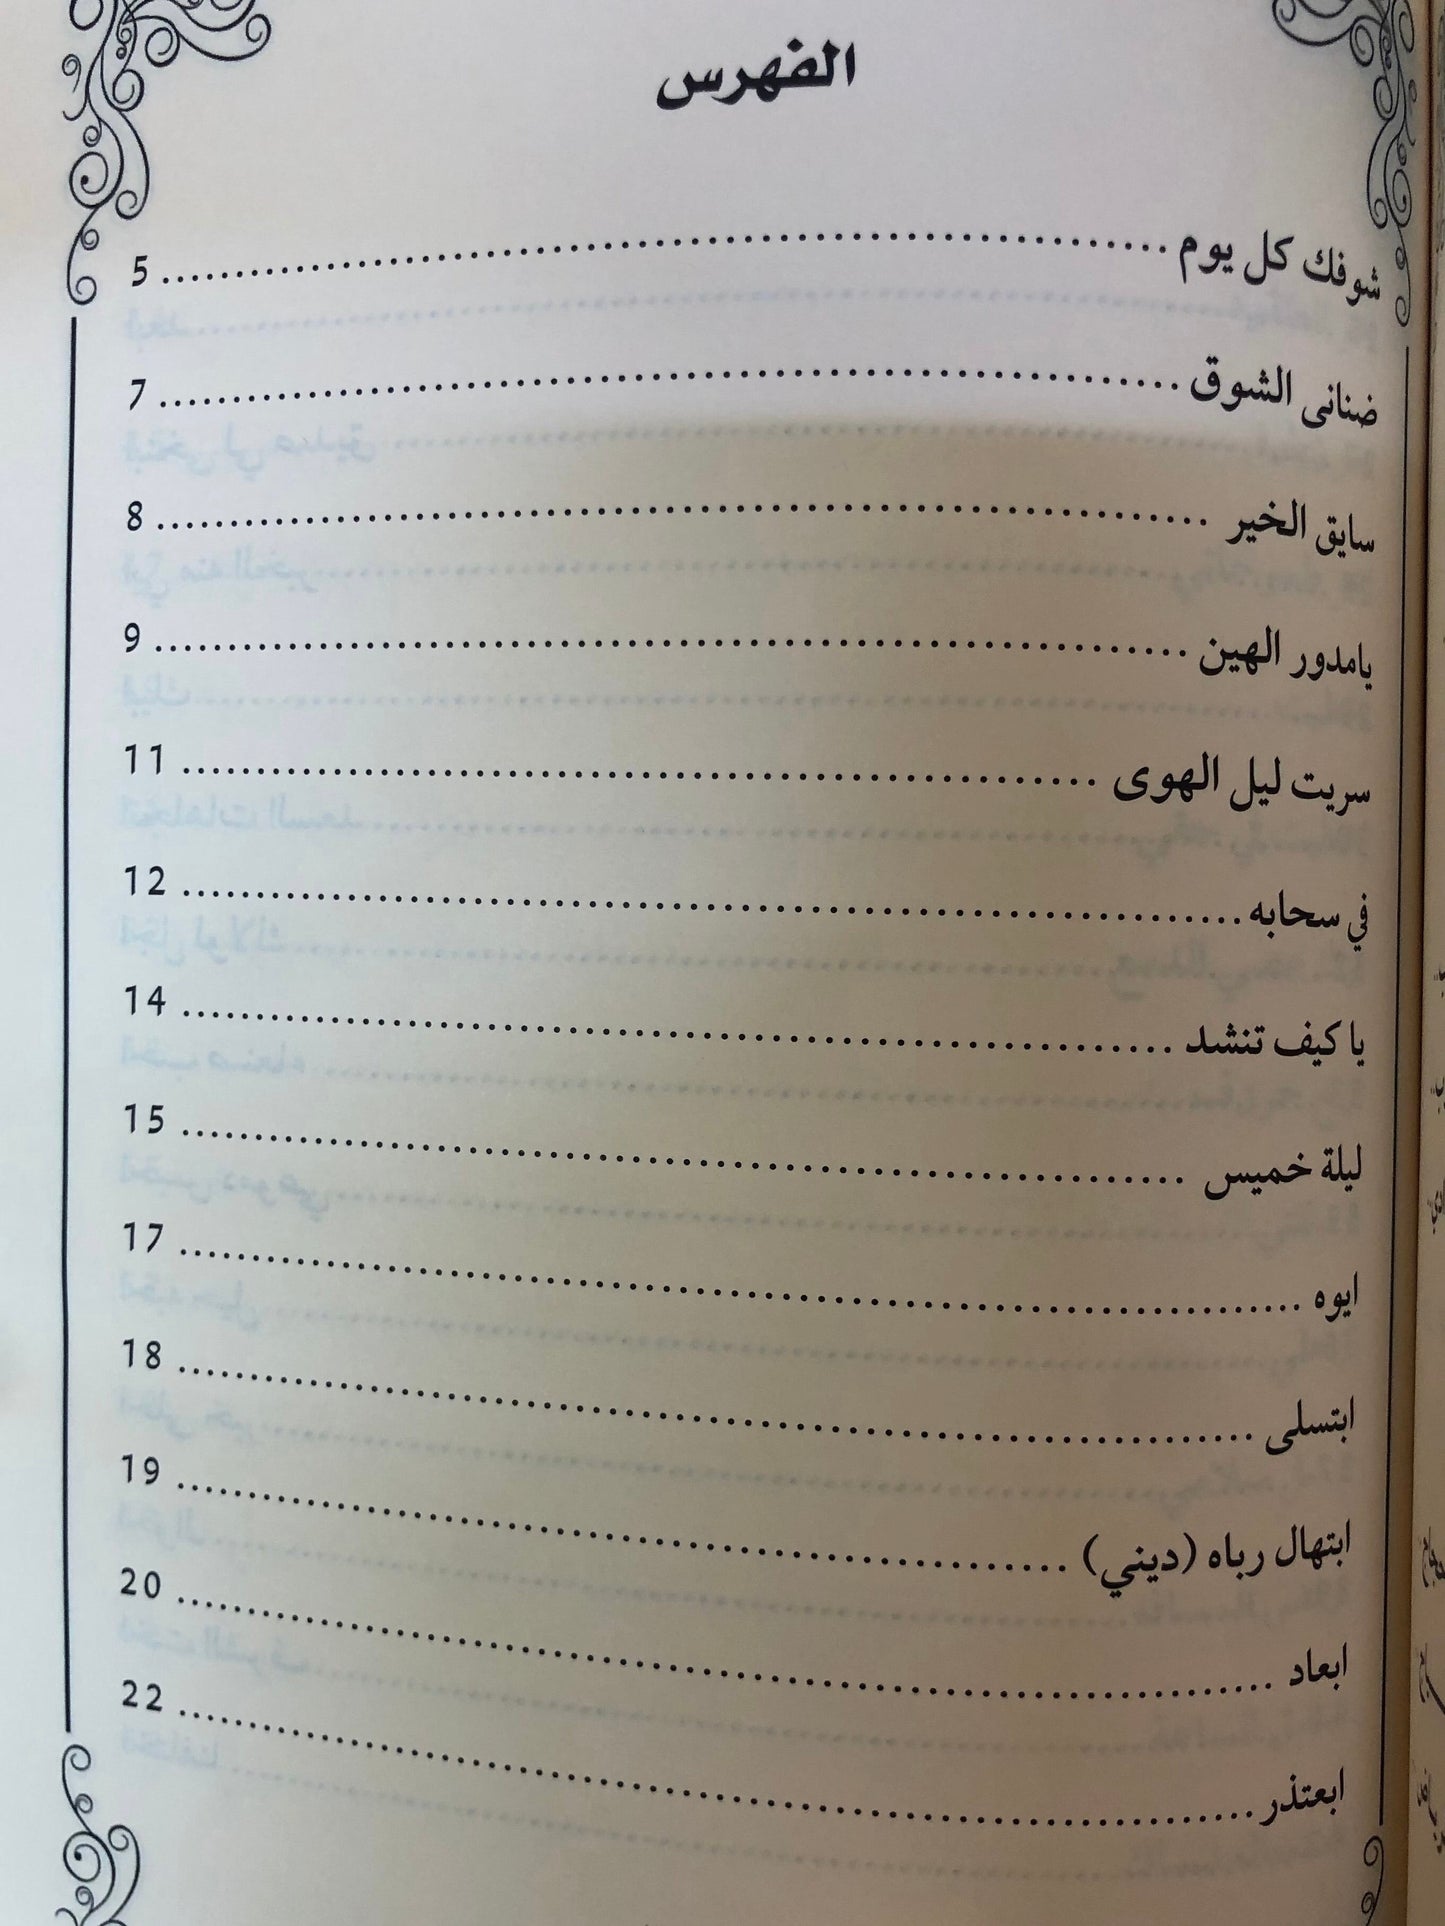 الفهرس
شوفك كل يوم ........ 5
ضنانى الشوق ........ 7
سايق الخير ........ 8
يامدور الهين ........ 9
سريت ليل الهوى ........ 11
في سحابه ........ 12
يا كيف تنشد ........ 14
ليلة خميس ........ 15
ايوه ........ 17
ابتسلى ........ 18
ابتهال رباه (ديني) ........ 19
ابعاد ........ 20
ابعتذر ........ 22